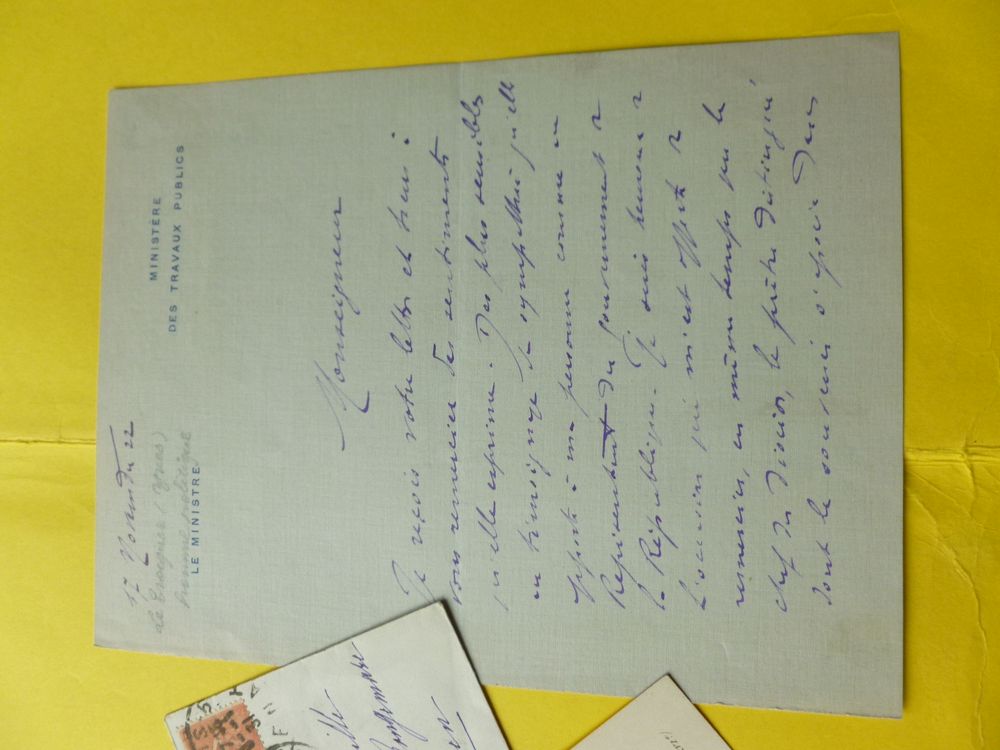 MINISTÈRE
DES TRAVAUX PUBLICS
17 Novembre 22
(Yves)
homme politique
LE MINISTRE
Monseigneur
Je reçois votre lettre et tiens à
vous remercier des sentiments
qu'elle exprime. Des plus sensibles
au témoignage de sympathie qu'elle
apporte à ma personne comme au
Représentant du gouvernement de
la République. Je suis heureux de
l'occasion qui m'est offerte de
remercier, en même temps que le
chef du diocèse, le prêtre distingué
dont le souvenir s'associe dans